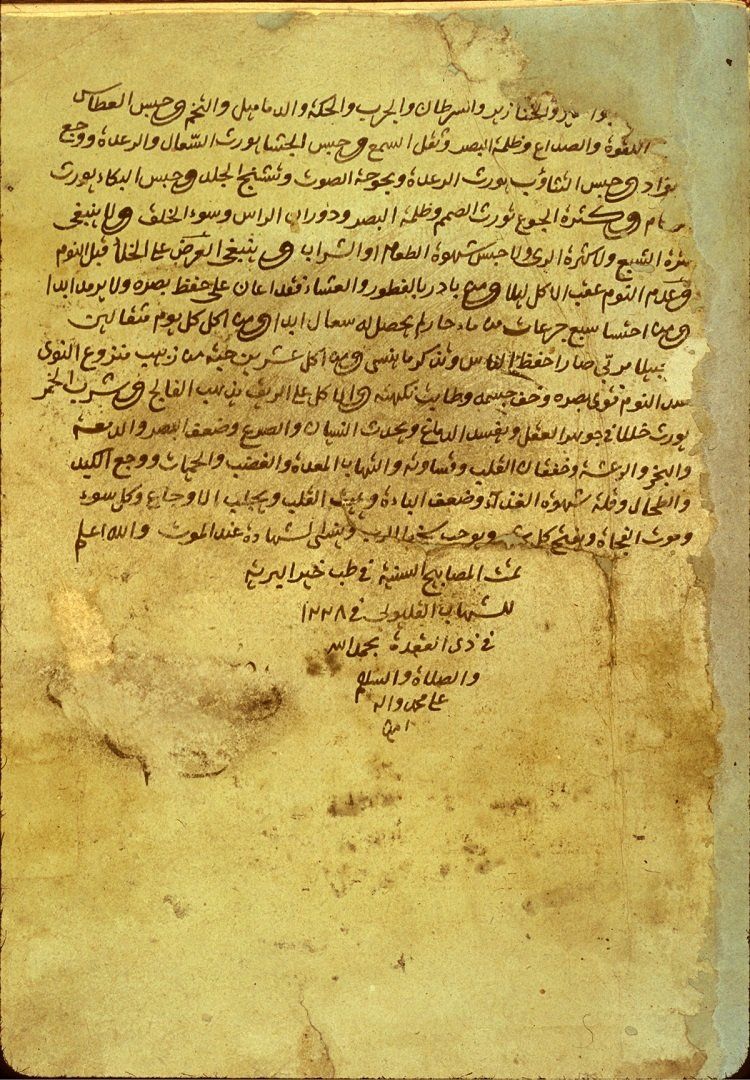 والخنازير والسرطان والجرب والحكة والدماميل والتخم وحبس العطاس
اللقوة والصداع وظلمة البصر وثقل السمع وحبس الجشا يورث السعال والرعدة ووجع
وحبس التثاؤب يورث الرعدة وبحوحة الصوت وتشنج الجلد وحبس البكاء يورث
وكثرة الجوع تورث الصمم وظلمة البصر ودوران الراس وسوء الخلق ولا ينبغي
الشبع ولا كثرة الري ولا حبس شهوة الطعام او الشراب وينبغي العرض على الخلا قبل النوم
وعدم النوم عقب الاكل ليلا ومن بادر بالفطور والعشا فقد اعان على حفظ بصره ولا يرمد ابدا
ومن احتسا سبع جرعات من ماء حار لم يحصل له سعال ابدا ومن اكل كل يوم مثقالين
مربى صار احفظ الناس وتذكر ما ينسى ومن اكل عشرين حبة من زبيب منزوع النوى
النوم قوى بصره وخف جسمه وطابت نكهته والاكل على الريق يذهب الفالج وشرب الخمر
يورث خللا في جوهر العقل ويفسد الدماغ ويحدث النسيان والصرع وضعف البصر والدمعة
والبخر والرعشة وخفقان القلب وقساوته والتهاب المعدة والغضب والحميات ووجع الكبد
والطحال وقلة شهوة الغذاء وضعف الباءة ويميت القلب ويجلب الاوجاع وكل سوء
وموت الفجاة ويفتح كل شر ويوجب سخط الرب وينسى الشهادة عند الموت والله اعلم
تمت المصابيح السنية في طب خير البرية
للشهاب القليوبي في ١٢٢٨
في ذي القعدة بحمد الله
والصلاة والسلام
على محمد واله
امين